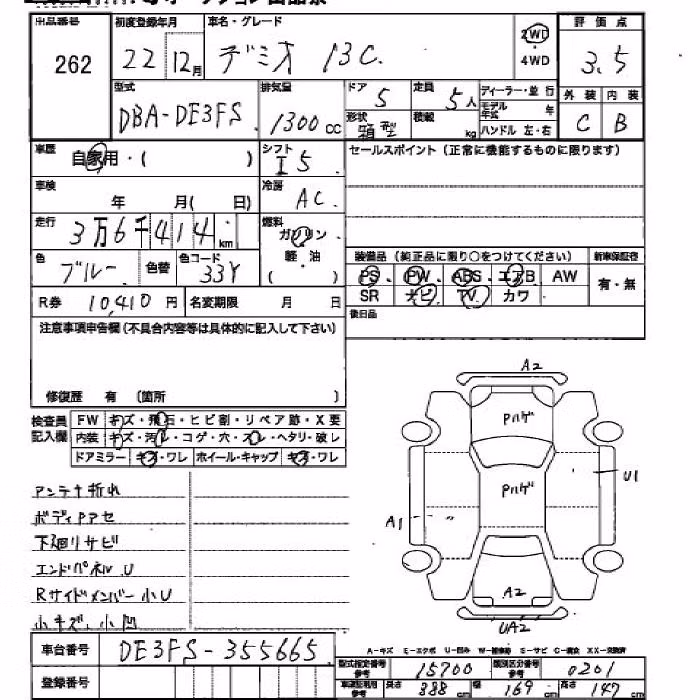 出品番号 262
初度登録年月 22 12月
車名・グレード デミオ 13C.
2WD
4WD
評価点 3.5
外装 内装
C B
型式 DBA-DE3FS
排気量 1300 CC
ドア 5
定員 5人
形状 箱型
積載 kg
ディーラー・並行
モデル年式 年
ハンドル 左・右
車歴 自家用・( )
シフト I5
セールスポイント(正常に機能するものに限ります)
車検 年 月( 日)
冷房 AC.
走行 3万6千414 km
燃料 ガソリン
軽・油
( )
色 ブルー
色替
色コード 33Y
装備品(純正品に限り○をつけてください)
新車保証書
PS・PW・ABS・エアB AW
SR ナビ TV カワ
有・無
R券 10,410 円
名変期限 月 日
後日品
注意事項申告欄(不具合内容等は具体的に記入して下さい)
修復歴 有 (箇所 )
検査員記入欄
FW キズ・飛石・ヒビ割・リペア跡・X要
内装 キズ・汚レ・コゲ・穴・スレ・ヘタリ・破レ
ドアミラー キズ・ワレ ホイール・キャップ キズ・ワレ
アンテナ折れ
ボディPアセ
下廻リサビ
エンドパネル U
Rサイドメンバー小U
小キズ、小凹
A2
Pハゲ
Pハゲ
U1
A1
A2
UA2
A-キズ E-エクボ U-凹み W-補修跡 S-サビ C-腐食 XX-交換済
車台番号 DE3FS-355665
登録番号
型式指定番号 参考 15700
類別区分番号 参考 0201
車両証利用 参考 長さ 388 cm 幅 169 cm 高さ 147 cm